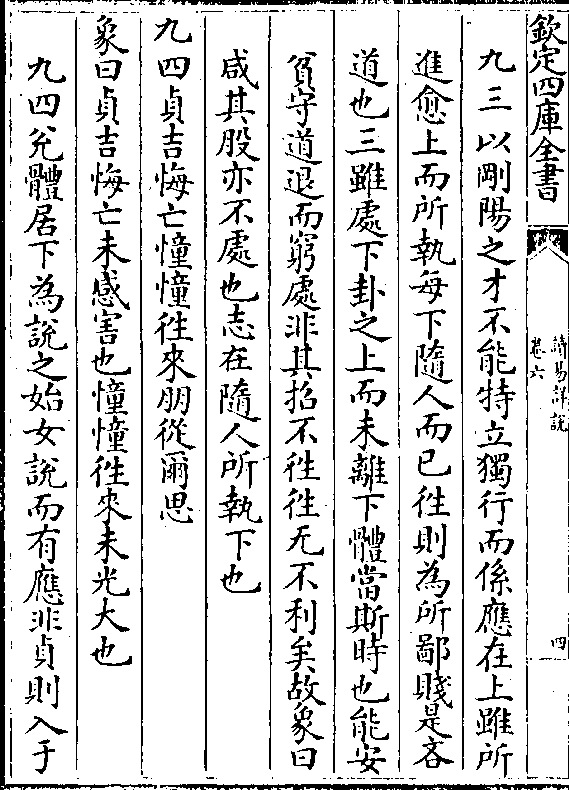 欽定四庫全書
讀易詳說
卷六
四
九三以剛陽之才不能特立獨行而係應在上雖所
進愈上而所執每下隨人而已往則為所鄙賤是吝
道也三雖處下卦之上而未離下體當斯時也能安
貧守道退而窮處非其招不往往无不利矣故象曰
咸其股亦不處也志在隨人所執下也
九四貞吉悔亡憧憧往來朋從爾思
象曰貞吉悔亡未感害也憧憧往來未光大也
九四兊體居下為說之始女說而有應非貞則入于